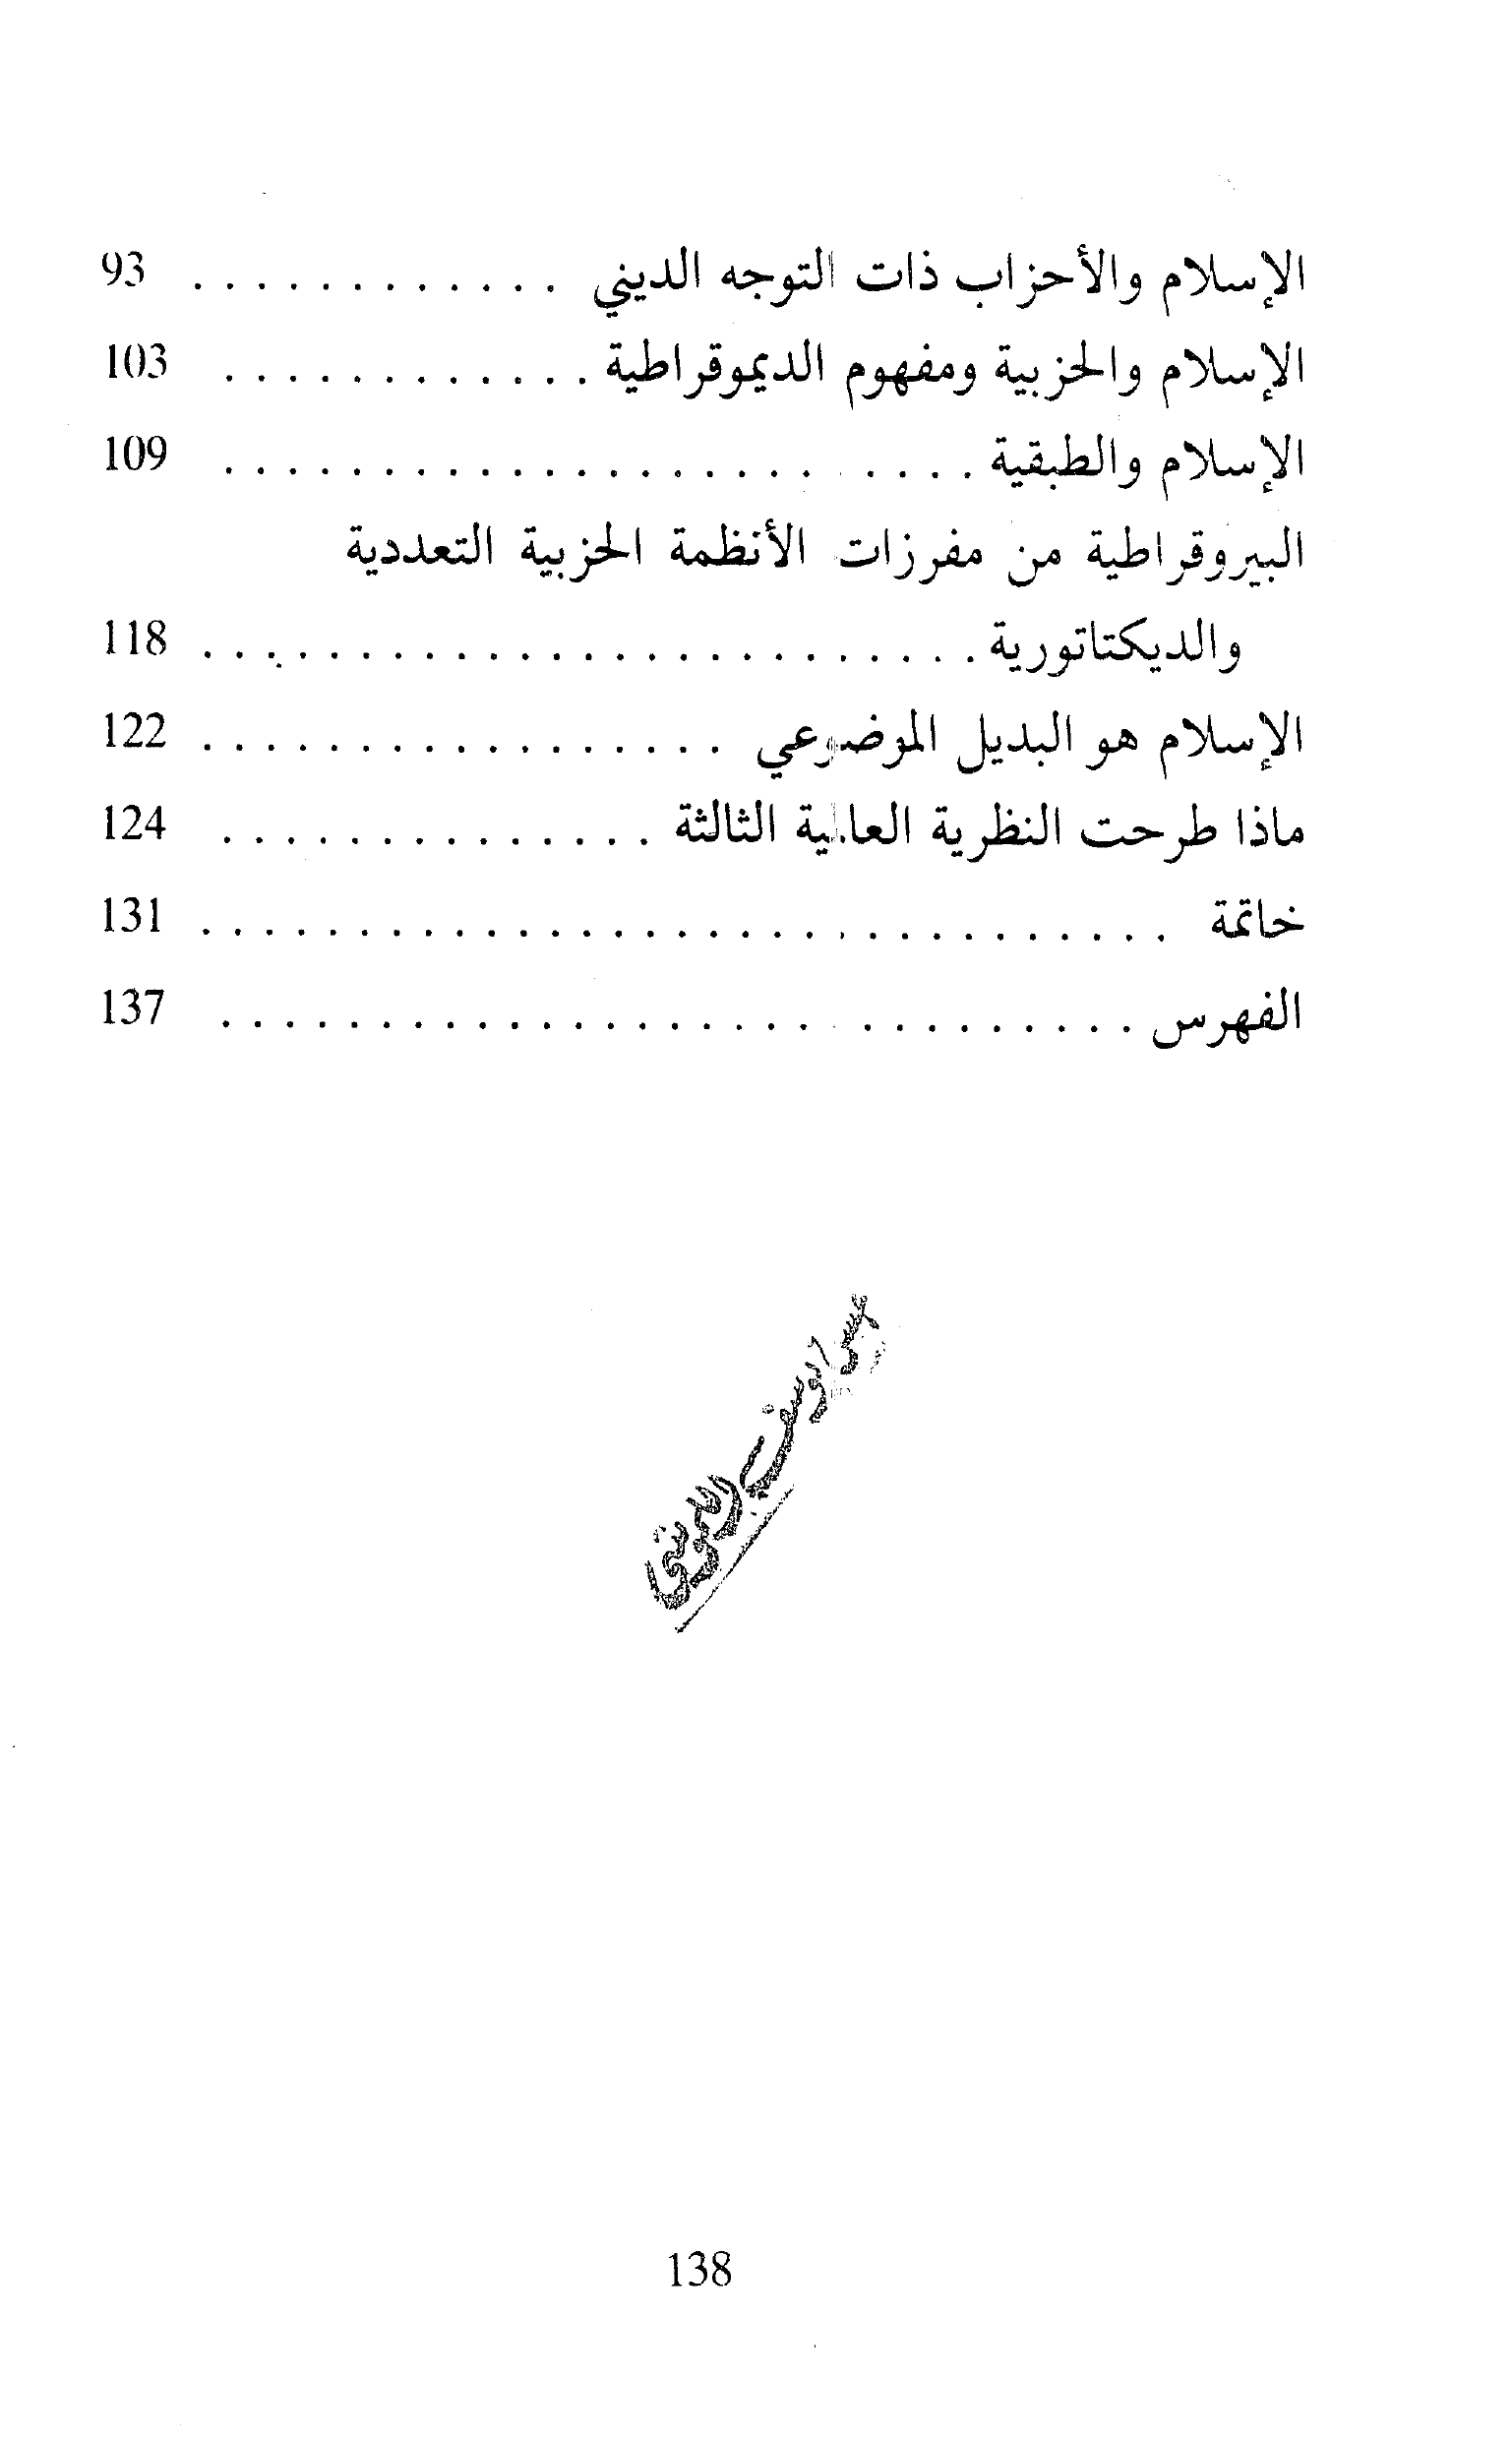 الإسلام والأحزاب ذات التوجه الديني . . . . . . . . . . . . 93
الإسلام والحزبية ومفهوم الديموقراطية . . . . . . . . . . . . 103
الإسلام والطبقية . . . . . . . . . . . . . . . . . . . . . . . . 109
البيروقراطية من مفرزات الأنظمة الحزبية التعددية
والديكتاتورية . . . . . . . . . . . . . . . . . . . . . . . . . 118
الإسلام هو البديل الموضوعي . . . . . . . . . . . . . . . . . 122
ماذا طرحت النظرية العالمية الثالثة . . . . . . . . . . . . . . 124
خاتمة . . . . . . . . . . . . . . . . . . . . . . . . . . . . . . . 131
الفهرس . . . . . . . . . . . . . . . . . . . . . . . . . . . . . 137
يوسف
138